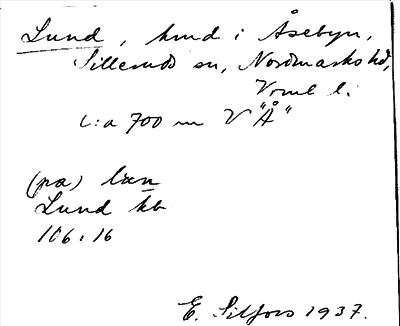 Lund, hmd i Åsebyn,
Silleruds sn, Nordmarks hd,
Vrml l.
c:a 700 m V "Å"
(pa) læn
Lund kb
106:16
E. Silfors 1937.